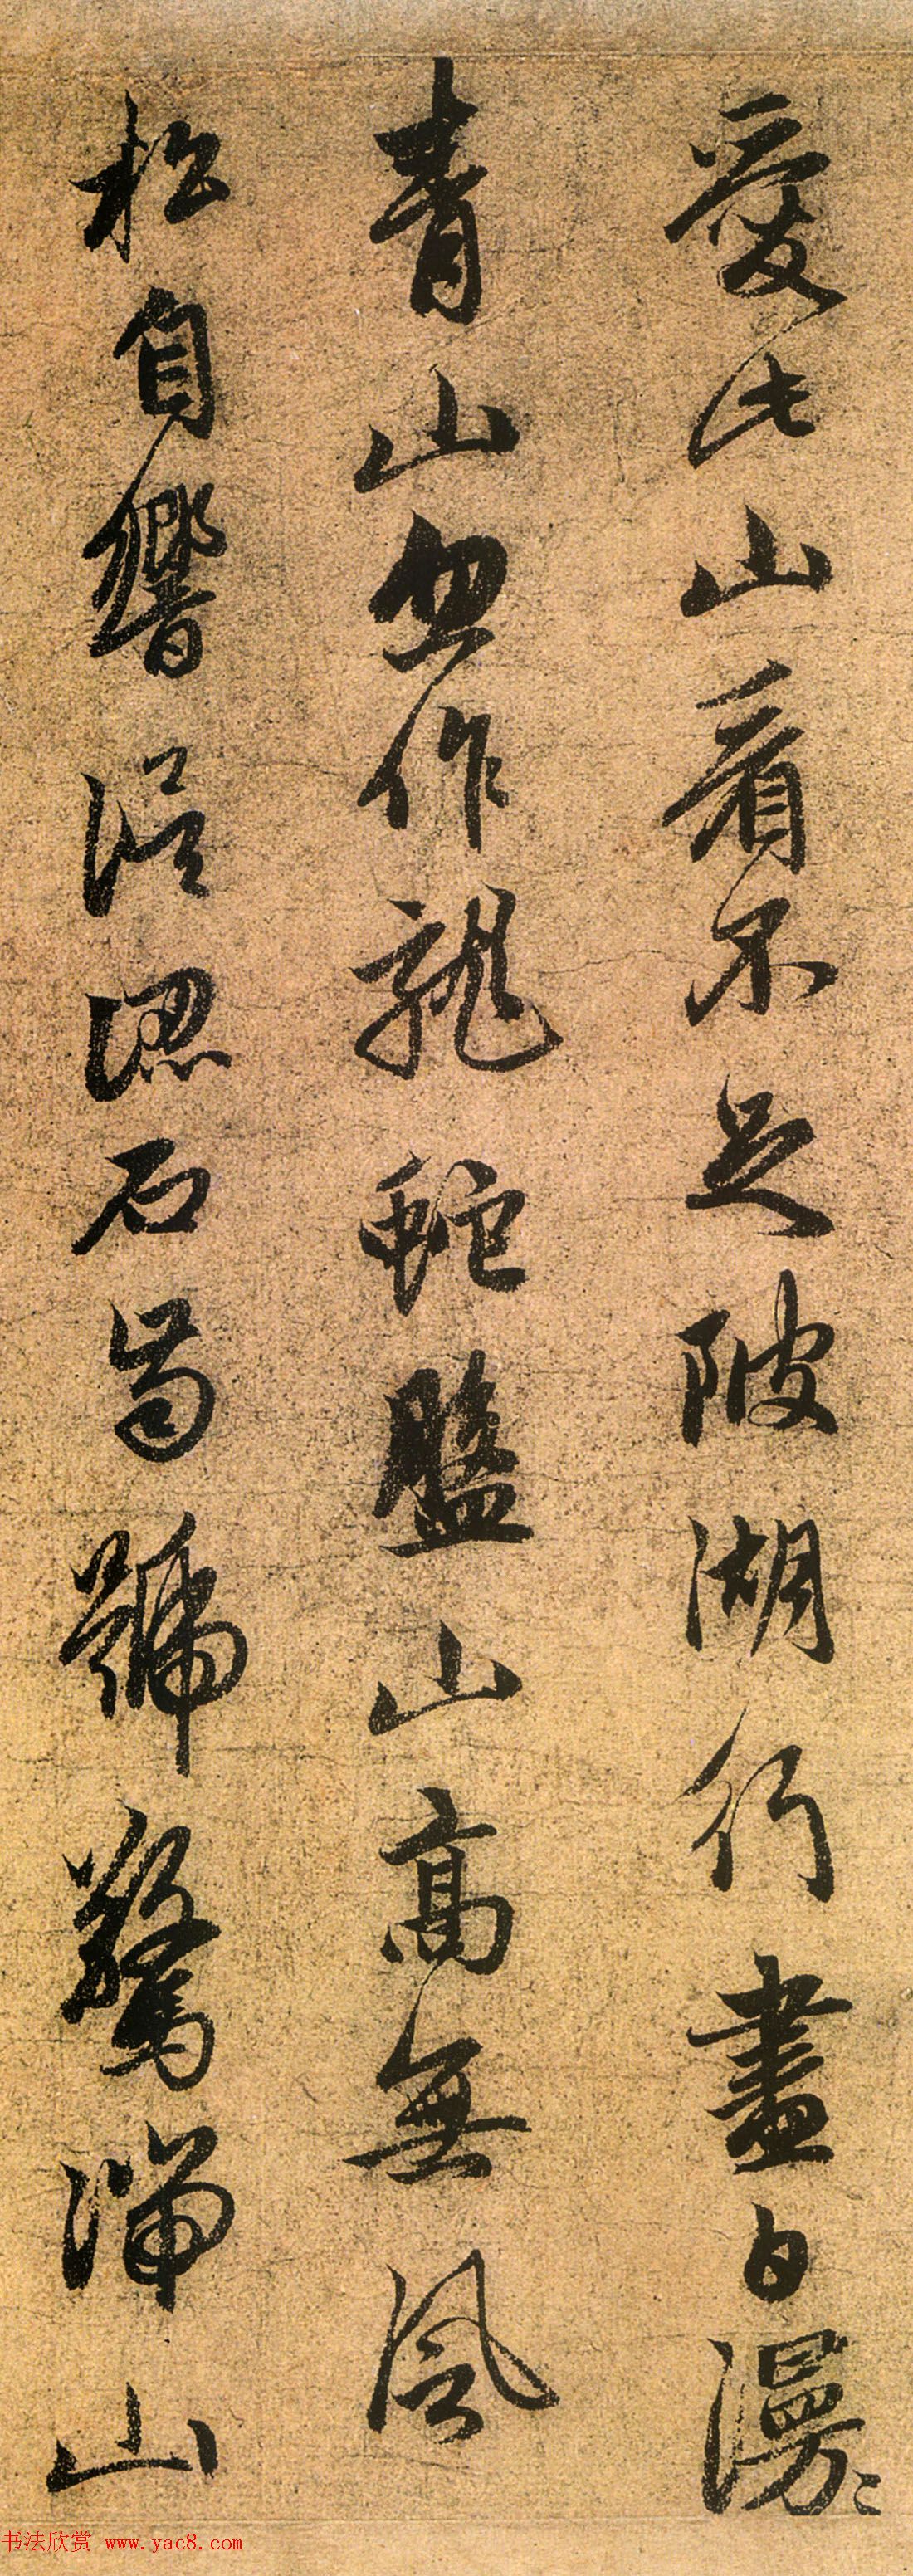 愛此山看不足陂湖行盡白漫〻
青山忽作龍蛇盤山高無風
松自響誤認石齒號驚湍山
书法欣赏 www.yac8.com